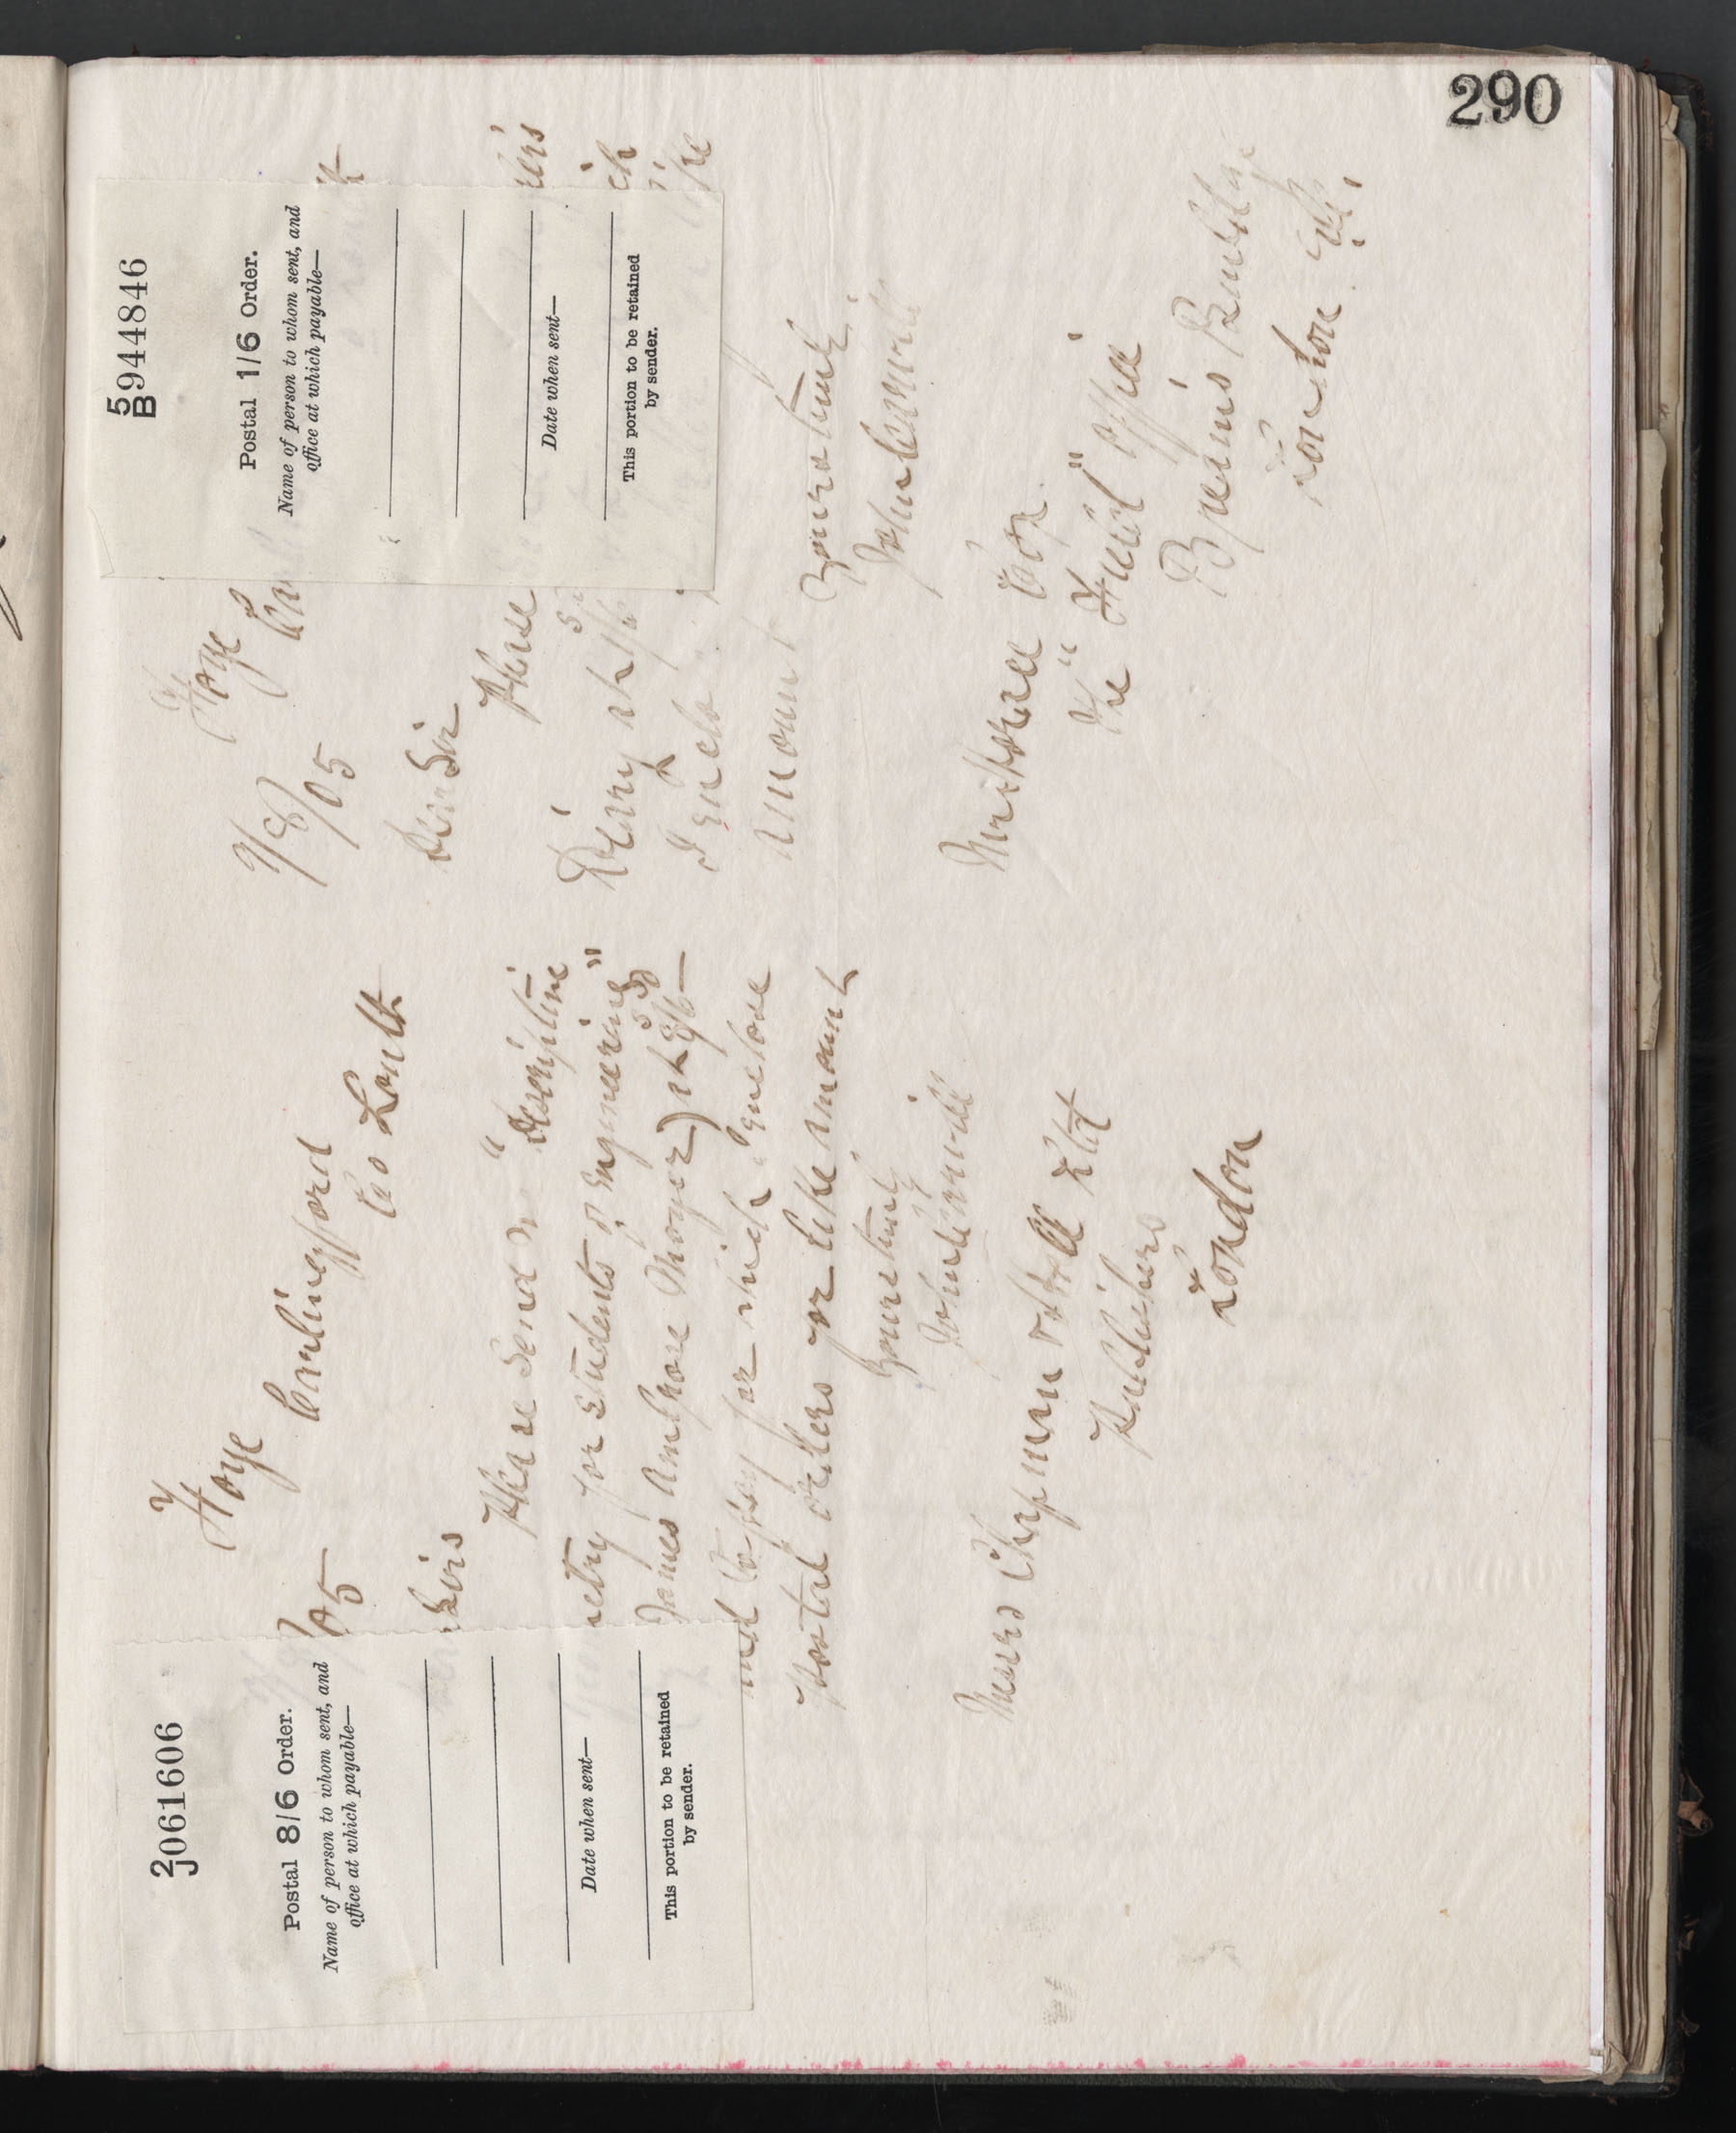 2/J 061606
Postal 8/6 Order.
Name of person to whom sent, and
office at which payable—
Date when sent—
This portion to be retained
by sender.
Foye
Carlingford
05
Co Louth
Sirs
Please send "Descriptive
etry for students of Engineering"
James Ambrose Moyer) at 8/6—
and to pay for which I enclose
Postal orders for like amount
yours truly
John Carvill
Messrs Chapman & Hall Ltd
Publishers
London
5/B 944846
Postal 1/6 Order.
Name of person to whom sent, and
office at which payable—
Date when sent—
This portion to be retained
by sender.
Foye
9/8/05
Dear Sir
Please
Diary at 1/6
I enclo
amount
yours truly
John Carvill
Mr Horace Cox.
The "Field" Office
Bream's Buildgs
London
290